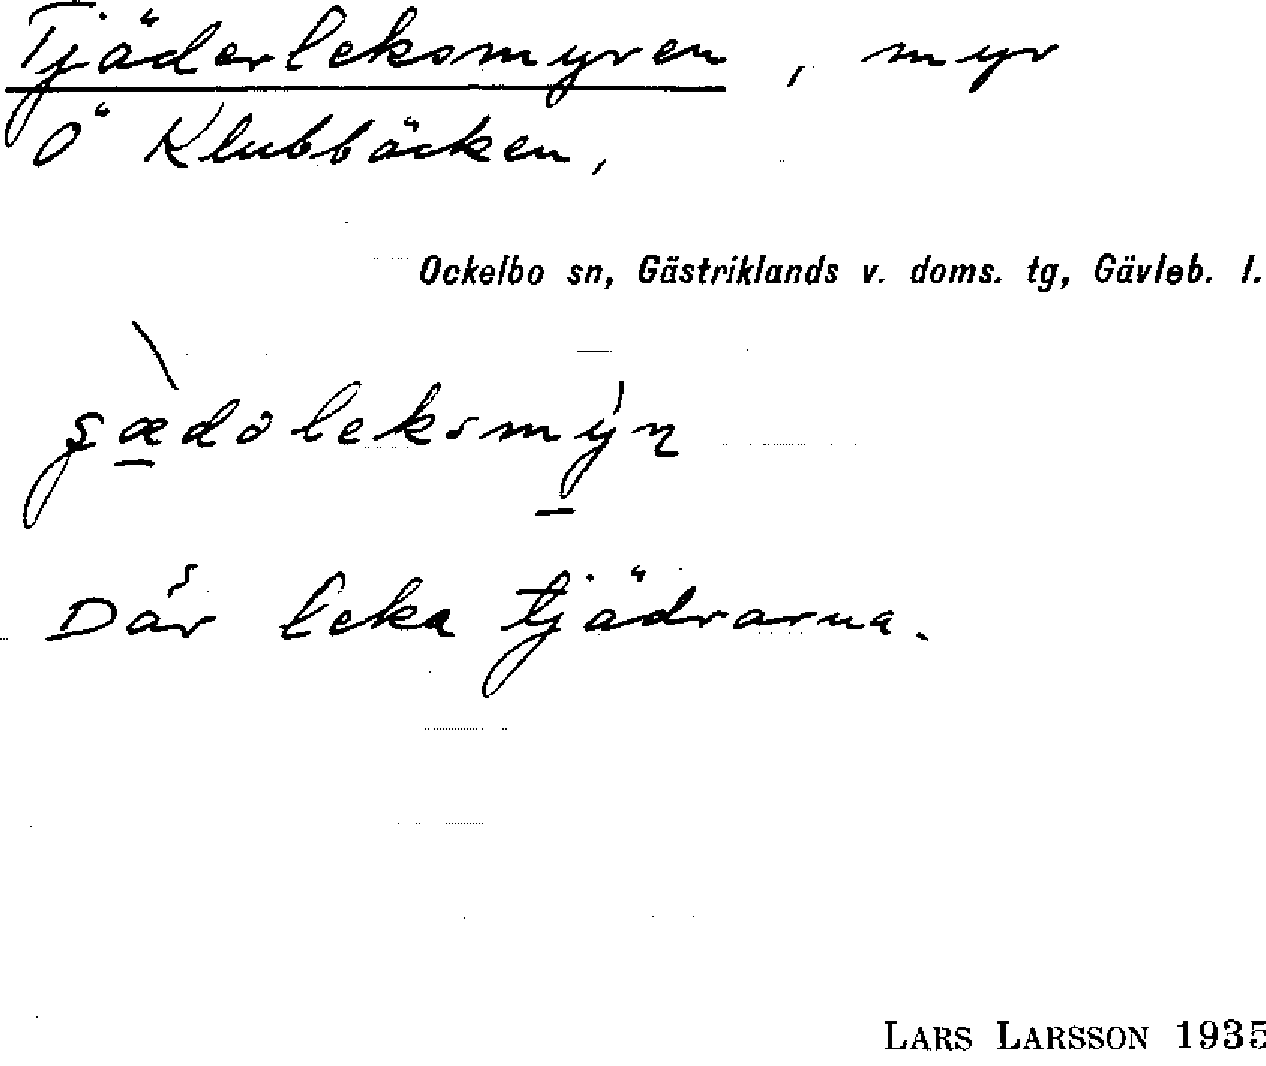 Tjäderleksmyren, myr
Ö Klubbäcken,
Ockelbo sn, Gästriklands v. doms. tg, Gävleb. l.
Där leka tjädrarna.
LARS LARSSON 1935